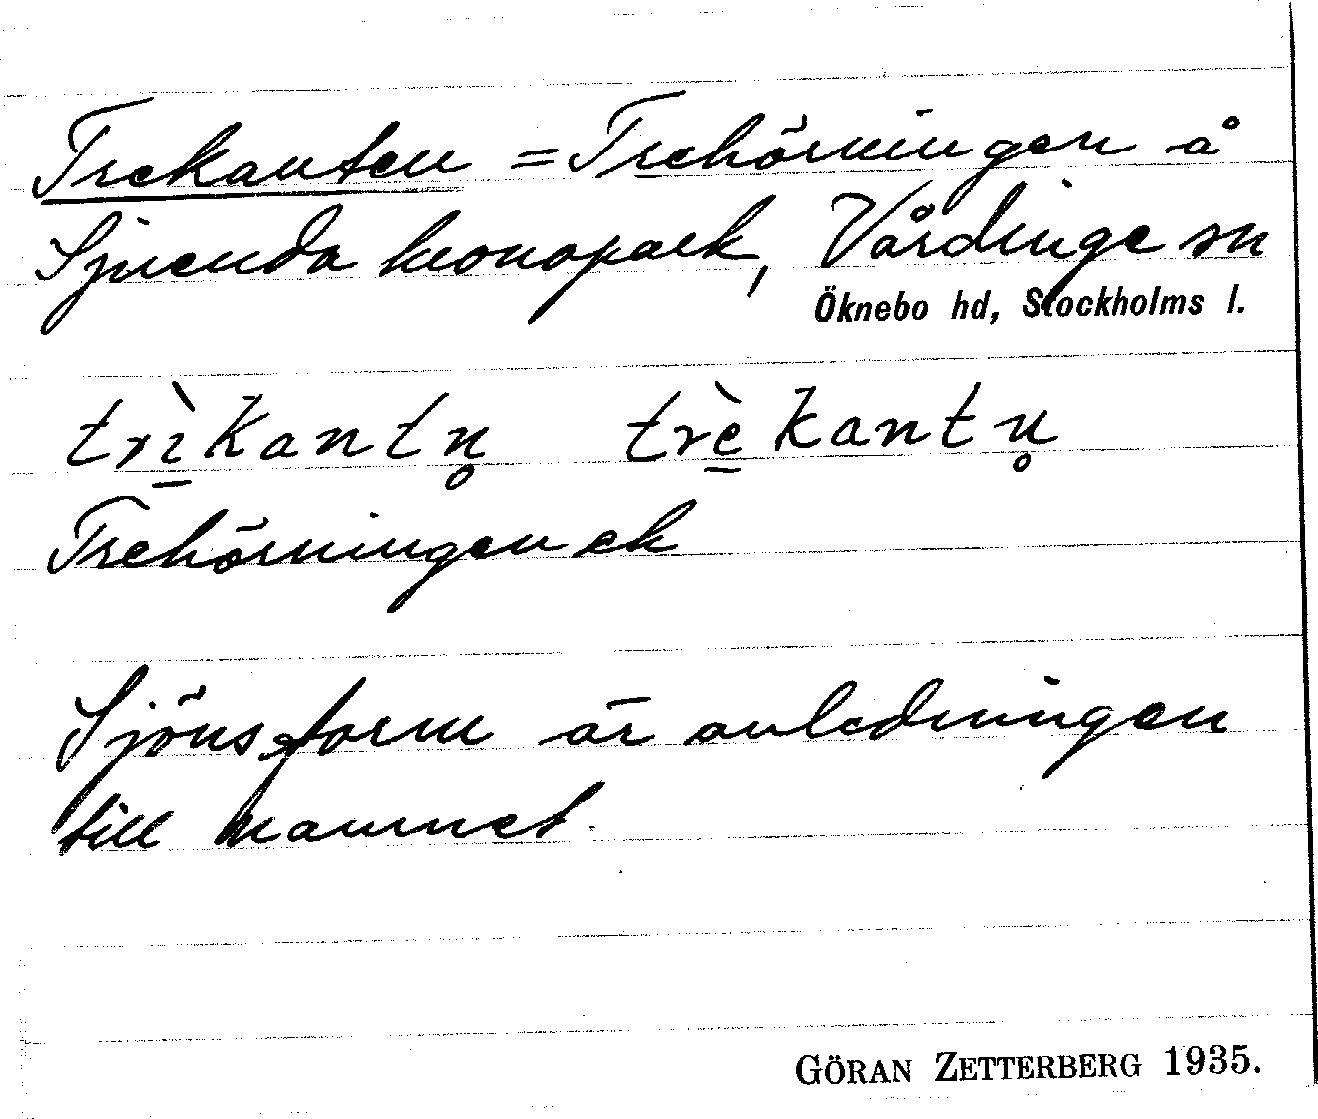 Trekanten = Trehörningen å
Sjuenda kronopark, Vårdinge sn
Öknebo hd, Stockholms l.
trìkantn̥ trèkantn̥
Trehörningen ek
Sjöns form är anledningen
till namnet.
GÖRAN ZETTERBERG 1935.